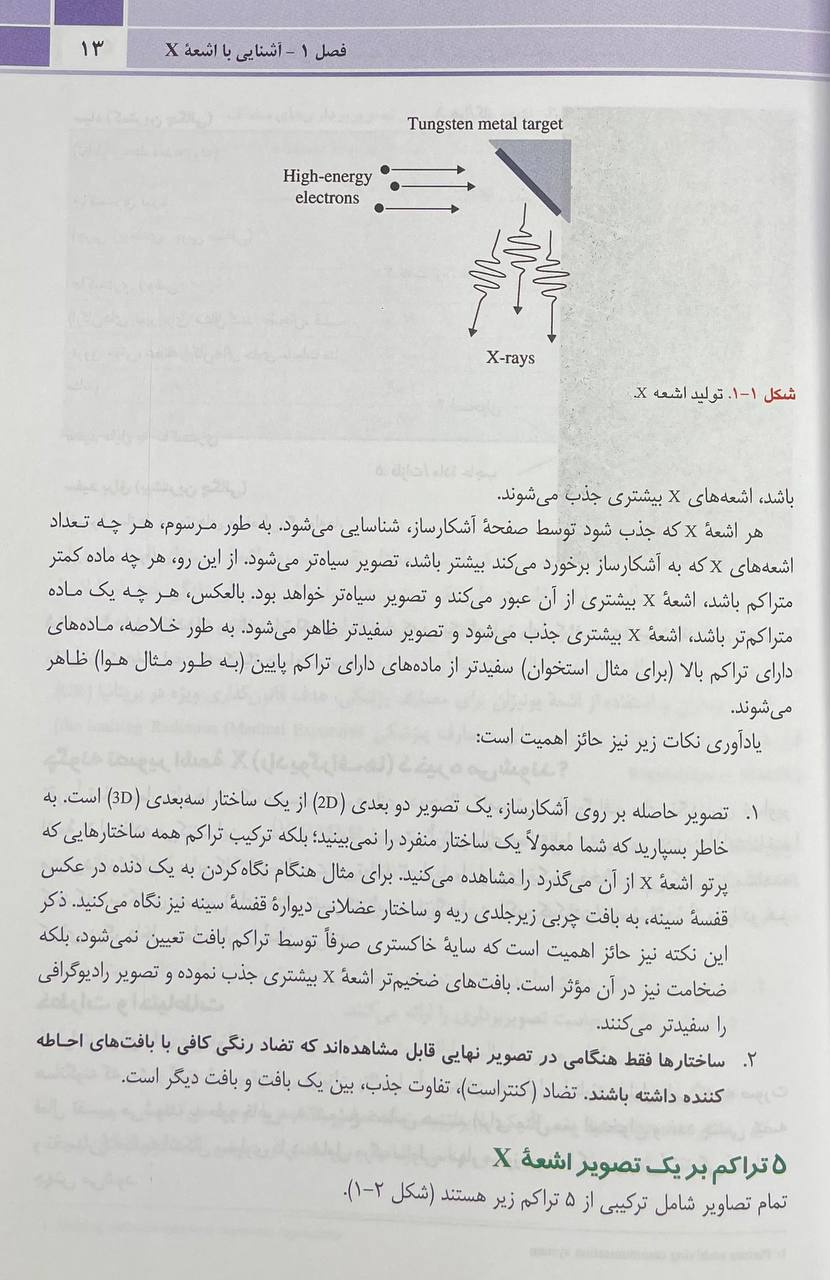 فصل ۱ - آشنایی با اشعهٔ X
۱۳
Tungsten metal target
High-energy
electrons
X-rays
شکل ۱-۱. تولید اشعه X.
باشد، اشعه‌های X بیشتری جذب می‌شوند.
هر اشعهٔ X که جذب شود توسط صفحهٔ آشکارساز، شناسایی می‌شود. به طور مرسوم، هر چه تعداد
اشعه‌های X که به آشکارساز برخورد می‌کند بیشتر باشد، تصویر سیاه‌تر می‌شود. از این رو، هر چه ماده کمتر
متراکم باشد، اشعهٔ X بیشتری از آن عبور می‌کند و تصویر سیاه‌تر خواهد بود. بالعکس، هر چه یک ماده
متراکم‌تر باشد، اشعهٔ X بیشتری جذب می‌شود و تصویر سفیدتر ظاهر می‌شود. به طور خلاصه، ماده‌های
دارای تراکم بالا (برای مثال استخوان) سفیدتر از ماده‌های دارای تراکم پایین (به طور مثال هوا) ظاهر
می‌شوند.
یادآوری نکات زیر نیز حائز اهمیت است:
۱. تصویر حاصله بر روی آشکارساز، یک تصویر دو بعدی (2D) از یک ساختار سه‌بعدی (3D) است. به
خاطر بسپارید که شما معمولاً یک ساختار منفرد را نمی‌بینید؛ بلکه ترکیب تراکم همه ساختارهایی که
پرتو اشعهٔ X از آن می‌گذرد را مشاهده می‌کنید. برای مثال هنگام نگاه‌کردن به یک دنده در عکس
قفسهٔ سینه، به بافت چربی زیرجلدی ریه و ساختار عضلانی دیوارهٔ قفسهٔ سینه نیز نگاه می‌کنید. ذکر
این نکته نیز حائز اهمیت است که سایهٔ خاکستری صرفاً توسط تراکم بافت تعیین نمی‌شود، بلکه
ضخامت نیز در آن مؤثر است. بافت‌های ضخیم‌تر اشعهٔ X بیشتری جذب نموده و تصویر رادیوگرافی
را سفیدتر می‌کنند.
۲. ساختارها فقط هنگامی در تصویر نهایی قابل مشاهده‌اند که تضاد رنگی کافی با بافت‌های احاطه
کننده داشته باشند. تضاد (کنتراست)، تفاوت جذب، بین یک بافت و بافت دیگر است.
۵ تراکم بر یک تصویر اشعهٔ X
تمام تصاویر شامل ترکیبی از ۵ تراکم زیر هستند (شکل ۲-۱).